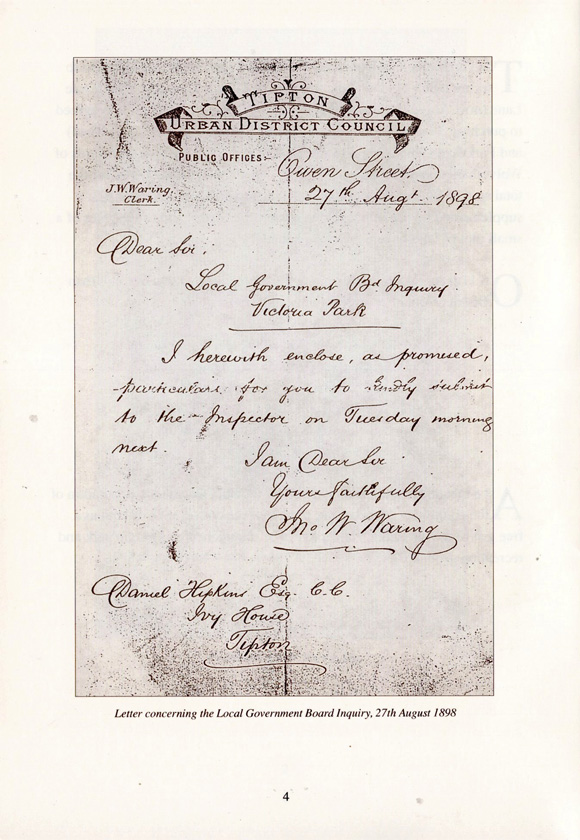 TIPTON
URBAN DISTRICT COUNCIL
PUBLIC OFFICES:-
Owen Street.
J.W. Waring.
Clerk.
27th Augt. 1898
Dear Sir,
Local Government Bd Inquiry.
Victoria Park
I herewith enclose, as promised,
particulars for you to kindly submit
to the Inspector on Tuesday morning
next.
I am Dear Sir
Yours faithfully
Jno W Waring
Daniel Hipkins Esq. C.C.
Ivy House
Tipton
Letter concerning the Local Government Board Inquiry, 27th August 1898
4